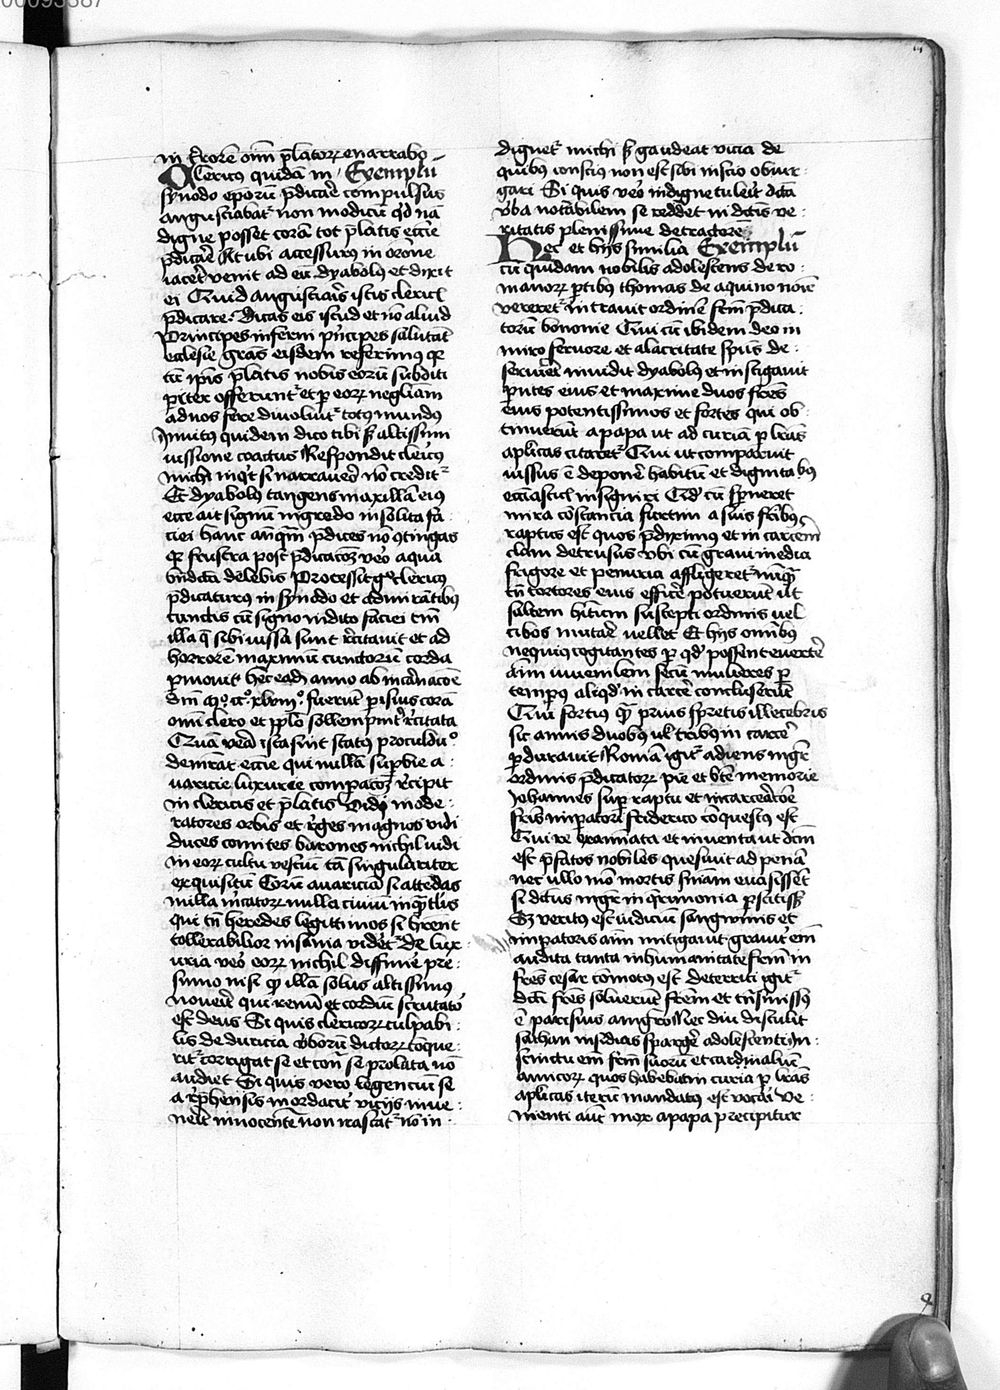 in t'rorē oīm p̄lator͛ enarrabo
Clericus quidā in Exemplū
synodo ep̄orū p̄dicar̄ compulsus
angustiabat͛ non modicū qđ nā
digne posset corā tot p̄latis eccīe
p̄dicar̄ Et ubi accessurus in oōne
iacet͛ venit ad eū dyabolus et dixit
ei Quid angustiaris istis clericis
p̄dicare. Dicas eis istud et nō aliud
Principes inferni p̄ncipes salutāt
ecclesie grās eisdem referimus qr
cū ip̄is p̄latis nobis eorū subditi
pͥter offerunt͛ et p eor͛ negliām
ad nos fere divoluit͛ totus mundus
Invitus quidem dico tibi sꝫ altissimi
iussione coactus Respondit clericus
michi inqͥt si narravero nō credit͛
Et dyabolus tangens maxillā eius
ecce ait signū nigredo insolita fa
ciei hanc anqͣm p̄dices nō ꝯtingas
qr frustra post p̄dicacōꝫ vero aqua
bn̄dcā delebis Processit g° clericus
p̄dicaturus in synodo et admirātibus
cunctis cū signo indito faciei eius
illa q̄ sibi iussa sunt rcitavit et ad
horrorē maximū cunctorū corda
pmovit hec eadē anno ab incarnacōe
dn̄i m°. cc°. xlviii°. fuerūt pisius corā
om̄i clero et pplo sollempnit͛ rcitata
Quā vera ista sint status procul du°.
demrāt eccīe qui nullā supbie a
varicie luxurie compacōꝫ rcipit
in clericis et p̄latis Vidi mode
ratores orbis et reges magnos vidi
duces comites barones nichil vidi
in eor͛ cultu vestiū tā singulariter
exquisitū Eorū avariciā si attēdas
nulla mcator͛ nulla civiū inqͣ t'lis
qui tn̄ heredes legittimos si hrēnt
tollerabilior insania videt͛ De lux
uria vero eor͛ nichil diffinie pre
sumo nisi qꝫ illā solus altissimus
noverit qui renū et cordiū scrutator
est deus Si quis clericor͛ culpabi
lis de duricia v'borū dictor͛ cōque
rit͛ corrigat se et cont̄ se prolata nō
audiet Si quis vero legenciū se
a rp̄hensis mordacit͛ viciis inve
nerit innocentē non irascat͛ nō in
dignet͛ michi sꝫ gaudeat vicia de
quibus conscius non est sibi inscio obiur
gari Si quis vero indigne tulerit dcā
v'ba notabilem se reddet in dcīs ve
ritatis plenissime detractorē
Hec et hiis similia Exemplū
cū quidam nobilis adolescens de ro
manor͛ ptibus thomas de aquino noīe
vereret͛ intravit ordinē frm̄ p̄dica
torū bononie Qui cū ibidem deo in
miro fervore et alacritate sp̄us de
serviret invidit dyabolus et instigavit
pn̄tes eius et maxime duos fr̄es
eius potentissimos et fortes qui ob
tinuerūt a papa ut ad curiā p lrās
aplīcas citaret͛ Qui ut comparuit
iussus ē deponē habitū et dignitabus
eccīasticis insigniri Qđ cū sp̄neret
mira cōstancia furtim a suis fr̄ibus
raptus est quos p̄diximus et in carcerē
clam detrusus ubi cū gravi inedia
frigore et penuria affligeret͛ nūqͣ
tn̄ tortores eius efficē potuerūt ut
saltem hītum suscepti ordinis vel
cibos mutar̄ vellet Et hiis om̄ibus
nequius cogitantes p qđ possent evertē
aīm iuvenilem secū mulieres p
tempus aliqđ in carcē concluserūt
Qui fortius qͣ prius spretis illecebris
sic annis duobus ul͛ tribus in carcē
pduravit Romā igit͛ adiens mgr̄
ordinis p̄dicator͛ pie et bt̄e memorie
Johannes sup raptu et incarceracōe
fr̄is impatori frederico cōquestus est
Qui re examinata et inventa ut dcm̄
est p̄fatos nobiles quesivit ad penā
nec ullo mō mortis sn̄iam evasissēt
si dictus mgr̄ in qͥrimonia pstitiss͛
Sꝫ veritus est iudiciū sangwinis et
impatoris aīm mitigavit gravit͛ em̄
audita tanta inhumanitate frm̄ in
fr̄es cesar cōmotus est Deterriti igit͛
dcī fr̄es solverūt fr̄em et tn̄smissus
ē parisius a mgr̄o Nec diu distulit
sathan insidias spargē adolescenti in
stinctu em̄ frm̄ suorū et cardinaliū
amicor͛ quos habebat in curia p lrās
aplīcas iterū mandatus est vocari Ve
nienti aūt mox a papa precipitur